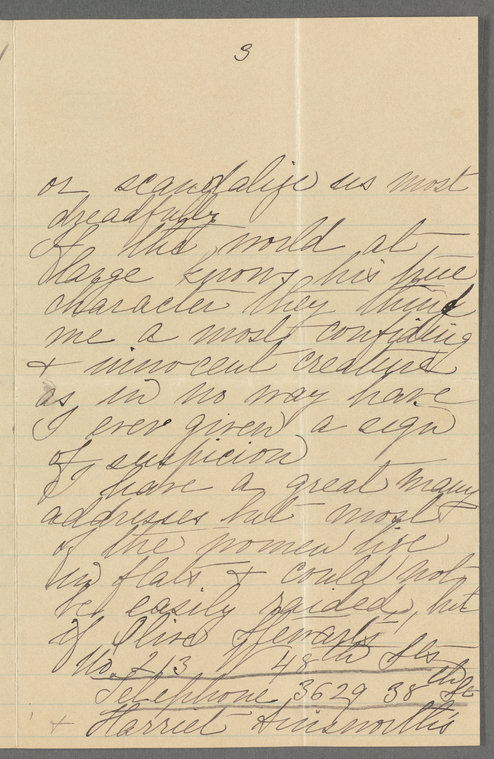 3
or scandalize us most
dreadfully
If the world at
large knows his true
character they think
me a most confiding
& innocent creature
as in no way have
I ever given a sign
of suspicion
I have a great many
addresses but most
of the women live
in flats & could not
be easily raided, but
if Olive Stewarts,
No. 213 W 48th St
Telephone 3629 38th St
& Harriet Ainsworth's